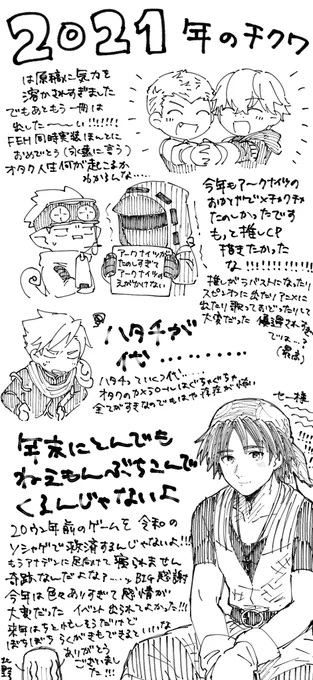 2021年のチクワ
は原稿に気力を
溶かされすぎました
でもあともう一冊は
出した〜〜い!!!!!!!
FEH同時実装ほんとに
おめでとう(永遠に言う)
オタク人生何が起こるか
わからんな‥‥
今年もアークナイツの
おかげでメチャクチャ
たのしかったです
もっと推しCP
描きたかった
な!!!!!!!!!!
アークナイツが
たのしすぎて
アークナイツの
えがかけない
推しがラバストになったり
スピンオフに出たりアニメに
出たり歌っておどったりして
大変だった 優遇されすぎ
では‥?
ハタチが
代‥‥‥‥‥
ハタチっていくつ代‥‥
オタクのカメラロールはぐちゃぐちゃ
全てがすきなのでもはや存在が怖い
セー様
年末にとんでも
ねえもんぶちこんで
くるんじゃないよ
20ウン年前のゲームを令和の
ソシャゲで救済するんじゃないよ!!!
もうアナデンに足向けて寝られません
奇跡なんだよな?‥‥BIG感謝
今年は色々ありすぎて感情が
大変だった イベント出られてよかった!!!
来年はちと忙しもうだけど
ぼちぼちらくがきもできるといいな
ありがとう
ございまし
た!!!